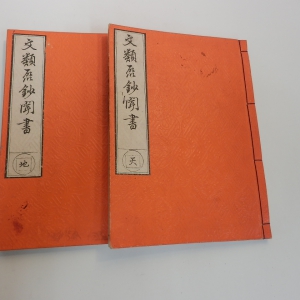 文類聚鈔聞書
天
文類聚鈔聞書
地